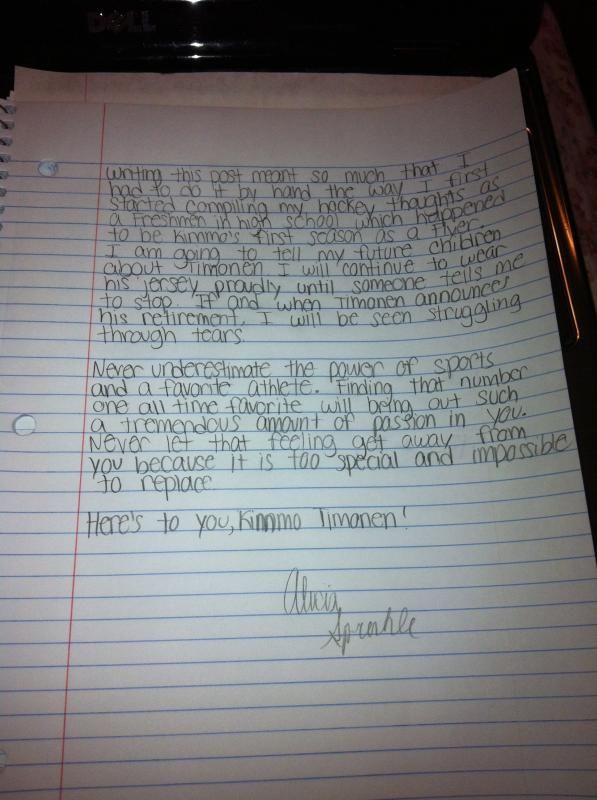 DELL
writing this post meant so much that I
had to do it by hand the way I first
started compiling my hockey thoughts as
a Freshmen in high school which happened
to be Kimmo's first season as a Flyer.
I am going to tell my future children
about Timonen I will continue to wear
his jersey proudly until someone tells me
to stop. If and when Timonen announces
his retirement, I will be seen struggling
through tears.
Never underestimate the power of sports
and a favorite athlete. Finding that number
one all time favorite will bring out such
a tremendous amount of passion in you.
Never let that feeling get away from
you because it is too special and impossible
to replace
Here's to you, Kimmo Timonen!
Alicia
Sprenkle